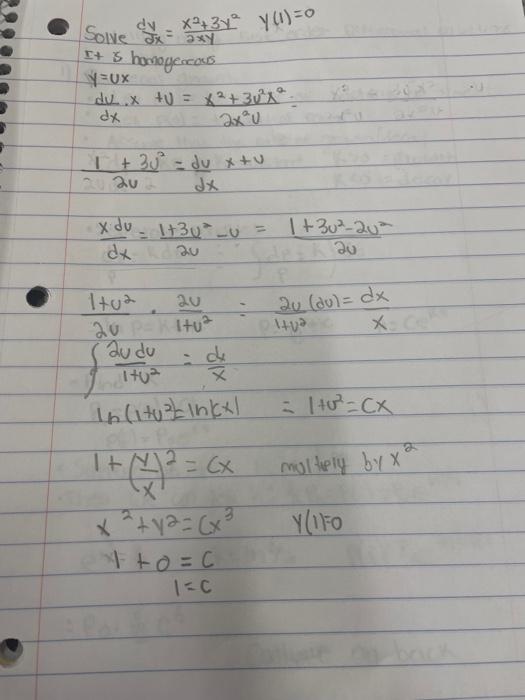 Solve dy/dx = x²+3y²/2xy y(1)=0
It is homogeneous
y=ux
du/dx · x + u = x²+3u²x²/2x²u =
1+3u²/2u = du/dx x+u
x du/dx = 1+3u²/2u - u = 1+3u²-2u²/2u
1+u²/2u · 2u/1+u² = 2u(du)/1+u² = dx/x
∫ 2u du/1+u² = dx/x
ln(1+u²)=ln|cx| = 1+u²=Cx
1+(y/x)² = Cx multiply by x²
x²+y²=Cx³ y(1)=0
1+0=C
1=C